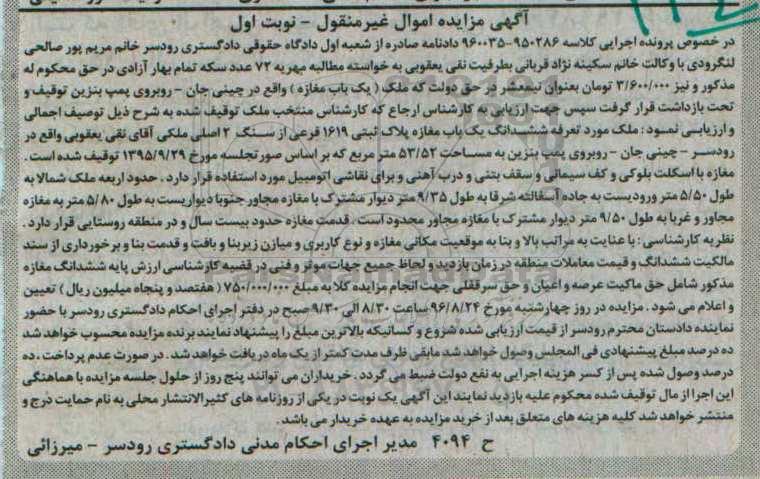 آگهی مزایده اموال غیرمنقول - نوبت اول
در خصوص پرونده اجرایی کلاسه ۹۵۰۲۸۶-۹۶۰۰۳۵ دادنامه صادره از شعبه اول دادگاه حقوقی دادگستری رودسر خانم مریم پور صالحی
لنگرودی با وکالت خانم سکینه نژاد قربانی بطرفیت نقی یعقوبی به خواسته مطالبه مهریه ۷۲ عدد سکه تمام بهار آزادی در حق محکوم له
مذکور و نیز ۳/۶۰۰/۰۰۰ تومان بعنوان نیمعشر در حق دولت که ملک (یک باب مغازه) واقع در چینی جان - روبروی پمپ بنزین توقیف و
تحت بازداشت قرار گرفت سپس جهت ارزیابی به کارشناس ارجاع که کارشناس منتخب ملک توقیف شده به شرح ذیل توصیف اجمالی
و ارزیابی نمود: ملک مورد تعرفه ششدانگ یک باب مغازه پلاک ثبتی ۱۶۱۹ فرعی از سنگ ۲ اصلی ملکی آقای نقی یعقوبی واقع در
رودسر - چینی جان - روبروی پمپ بنزین به مساحت ۵۳/۵۲ متر مربع که بر اساس صورتجلسه مورخ ۱۳۹۵/۹/۲۹ توقیف شده است.
مغازه با اسکلت بلوکی و کف سیمانی و سقف بتنی و درب آهنی و برای نقاشی اتومبیل مورد استفاده قرار دارد. حدود اربعه ملک شمالا به
طول ۵/۵۰ متر ورودیست به جاده آسفالته شرقا به طول ۹/۳۵ متر دیوار مشترک با مغازه مجاور جنوبا دیواریست به طول ۵/۸۰ متر به مغازه
مجاور و غربا به طول ۹/۵۰ متر دیوار مشترک با مغازه مجاور محدود است. قدمت مغازه حدود بیست سال و در منطقه روستایی قرار دارد.
نظریه کارشناسی: با عنایت به مراتب بالا و بنا به موقعیت مکانی مغازه و نوع کاربری و میازن زیربنا و بافت و قدمت بنا و برخورداری از سند
مالکیت ششدانگ و قیمت معاملات منطقه در زمان بازدید و لحاظ جمیع جهات موثر و فنی در قضیه کارشناسی ارزش پایه ششدانگ مغازه
مذکور شامل حق ماکیت عرصه و اعیان و حق سرقفلی جهت انجام مزایده کلا به مبلغ ۷۵۰/۰۰۰/۰۰۰ (هفتصد و پنجاه میلیون ریال) تعیین
و اعلام می شود. مزایده در روز چهارشنبه مورخ ۹۶/۸/۲۴ ساعت ۸/۳۰ الی ۹/۳۰ صبح در دفتر اجرای احکام دادگستری رودسر با حضور
نماینده دادستان محترم رودسر از قیمت ارزیابی شده شروع و کسانیکه بالاترین مبلغ را پیشنهاد نمایند برنده مزایده محسوب خواهد شد
ده درصد مبلغ پیشنهادی فی المجلس وصول خواهد شد مابقی ظرف مدت کمتر از یک ماه دریافت خواهد شد. در صورت عدم پرداخت، ده
درصد وصول شده پس از کسر هزینه اجرایی به نفع دولت ضبط می گردد. خریداران می توانند پنج روز از حلول جلسه مزایده با هماهنگی
این اجرا از مال توقیف شده محکوم علیه بازدید نمایند این آگهی یک نوبت در یکی از روزنامه های کثیرالانتشار محلی به نام حمایت درج و
منتشر خواهد شد کلیه هزینه های متعلق بعد از خرید مزایده به عهده خریدار می باشد.
ح ۴۰۹۴ مدیر اجرای احکام مدنی دادگستری رودسر - میرزائی